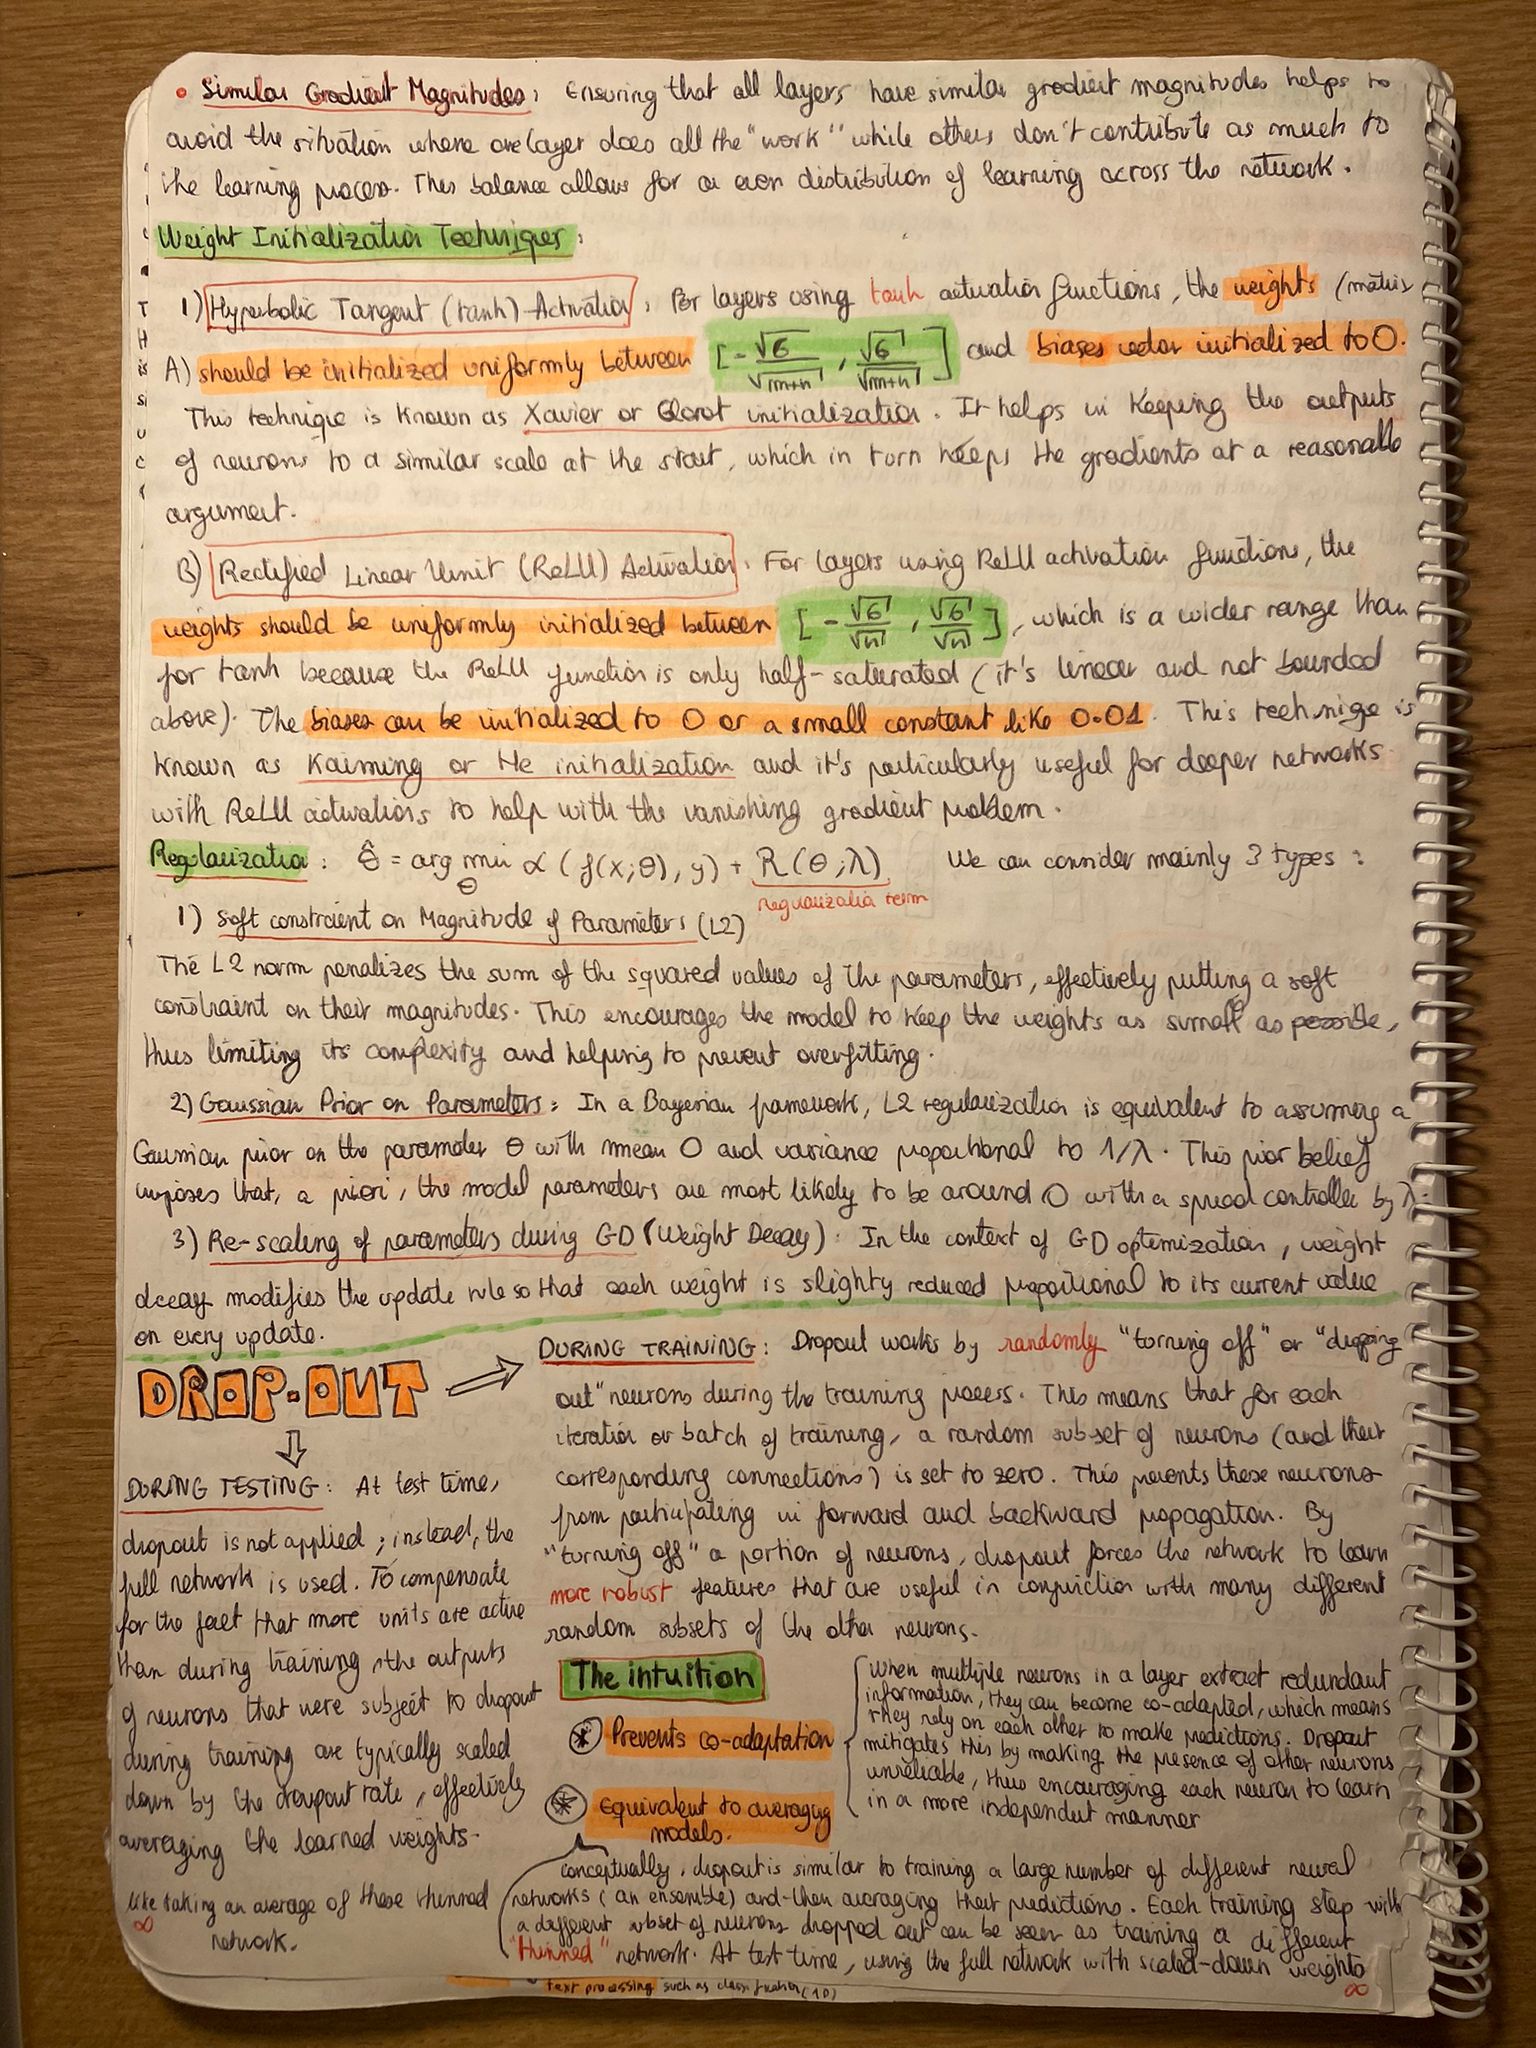 • Similar Gradient Magnitudes: Ensuring that all layers have similar gradient magnitudes helps to
avoid the situation where one layer does all the "work" while others don't contribute as much to
the learning process. This balance allows for a even distribution of learning across the network.
Weight Initialization Techniques:
1) Hyperbolic Tangent (tanh) Activation: For layers using tanh activation functions, the weights (matrix
A) should be initialized uniformly between [-√6/√m+n, √6/√m+n] and biases vector initialized to 0.
This technique is known as Xavier or Glorot initialization. It helps in keeping the outputs
of neurons to a similar scale at the start, which in turn keeps the gradients at a reasonable
argument.
B) Rectified Linear Unit (ReLU) Activation: For layers using ReLU activation functions, the
weights should be uniformly initialized between [-√6/√n, √6/√n], which is a wider range than
for tanh because the ReLU function is only half-saturated (it's linear and not bounded
above). The biases can be initialized to 0 or a small constant like 0.01. This technique is
known as Kaiming or He initialization and it's particularly useful for deeper networks
with ReLU activations to help with the vanishing gradient problem.
Regularization: θ̂ = arg min L (f(x;θ), y) + R(θ;λ) We can consider mainly 3 types:
θ
regularization term
1) Soft constraint on Magnitude of Parameters (L2)
The L2 norm penalizes the sum of the squared values of the parameters, effectively putting a soft
constraint on their magnitudes. This encourages the model to keep the weights as small as possible,
thus limiting its complexity and helping to prevent overfitting.
2) Gaussian Prior on Parameters: In a Bayesian framework, L2 regularization is equivalent to assuming a
Gaussian prior on the parameter θ with mean 0 and variance proportional to 1/λ. This prior belief
imposes that, a priori, the model parameters are most likely to be around 0 with a spread controlled by λ.
3) Re-scaling of parameters during GD (Weight Decay): In the context of GD optimization, weight
decay modifies the update rule so that each weight is slighty reduced proportional to its current value
on every update.
DROP-OUT
DURING TRAINING: Dropout works by randomly "turning off" or "dropping
out" neurons during the training process. This means that for each
iteration or batch of training, a random subset of neurons (and their
corresponding connections) is set to zero. This prevents these neurons
from participating in forward and backward propagation. By
"turning off" a portion of neurons, dropout forces the network to learn
more robust features that are useful in conjuction with many different
random subsets of the other neurons.
DURING TESTING: At test time,
dropout is not applied; instead, the
full network is used. To compensate
for the fact that more units are active
than during training, the outputs
of neurons that were subject to dropout
during training are typically scaled
down by the droupout rate, effectively
averaging the learned weights.
The intuition
* Prevents co-adaptation
When multiple neurons in a layer extract redundant
information, they can become co-adapted, which means
they rely on each other to make predictions. Dropout
mitigates this by making the presence of other neurons
unreliable, thus encouraging each neuron to learn
in a more independent manner
* Equivalent to averaging
models.
conceptually, dropout is similar to training a large number of different neural
networks (an ensemble) and then averaging their predictions. Each training step with
a different subset of neurons dropped out can be seen as training a different
"thinned" network. At test time, using the full network with scaled-down weights
∞
like taking an average of these thinned
∞ network.
text processing such as classification (1D)